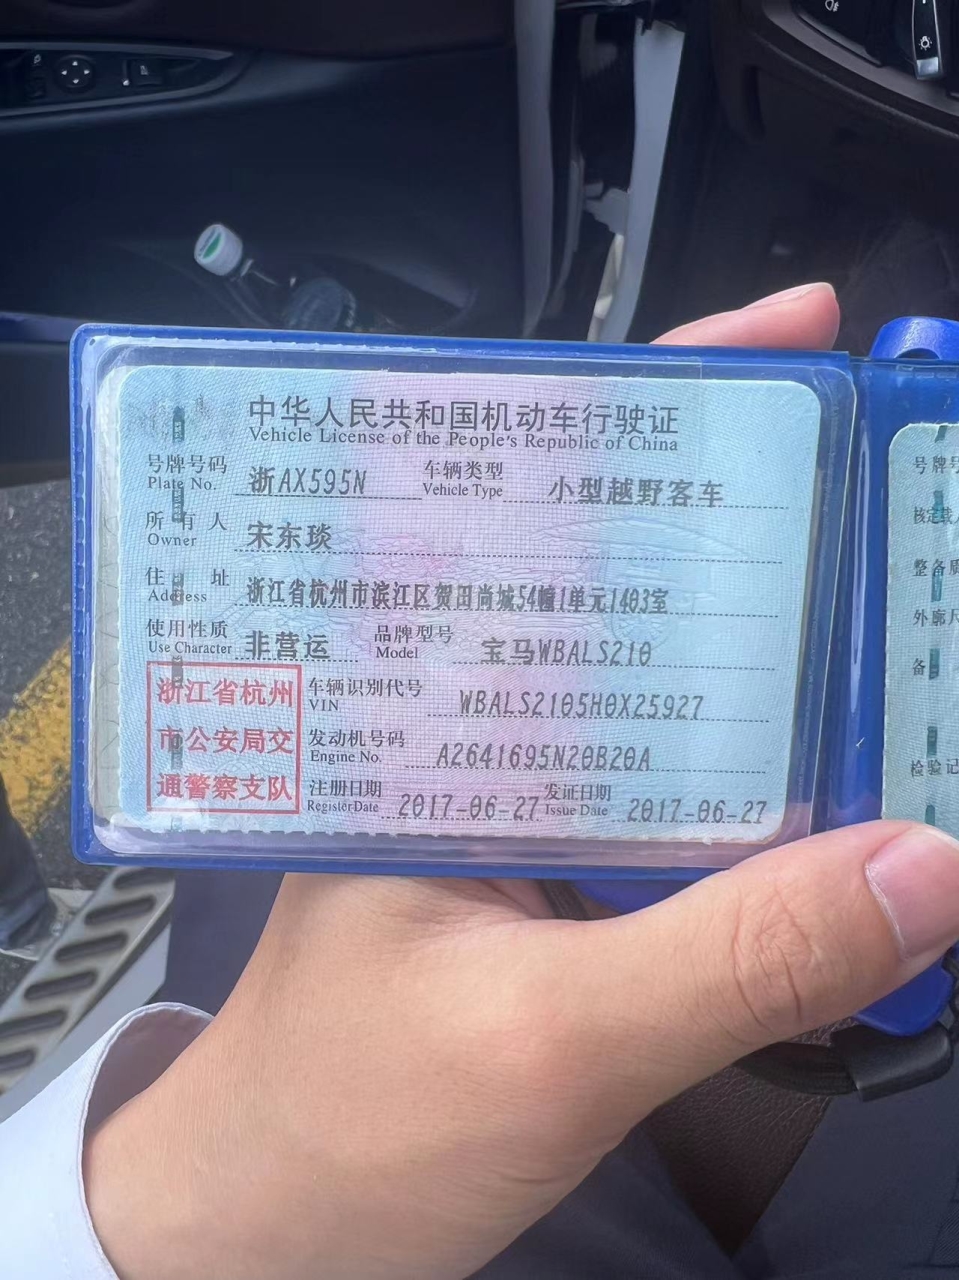 中华人民共和国机动车行驶证
Vehicle License of the People's Republic of China
号牌号码 浙AX595N 车辆类型 小型越野客车
Plate No. Vehicle Type
所有人 宋东琰
Owner
住址 浙江省杭州市滨江区贺田尚城54幢1单元1403室
Address
使用性质 非营运 品牌型号 宝马WBALS210
Use Character Model
浙江省杭州
市公安局交
通警察支队
车辆识别代号 WBALS2105H0X25927
VIN
发动机号码 A2641695N20B20A
Engine No.
注册日期 2017-06-27 发证日期 2017-06-27
Register Date Issue Date
号牌号
核定载
整备质
外廓尺
备
检验记